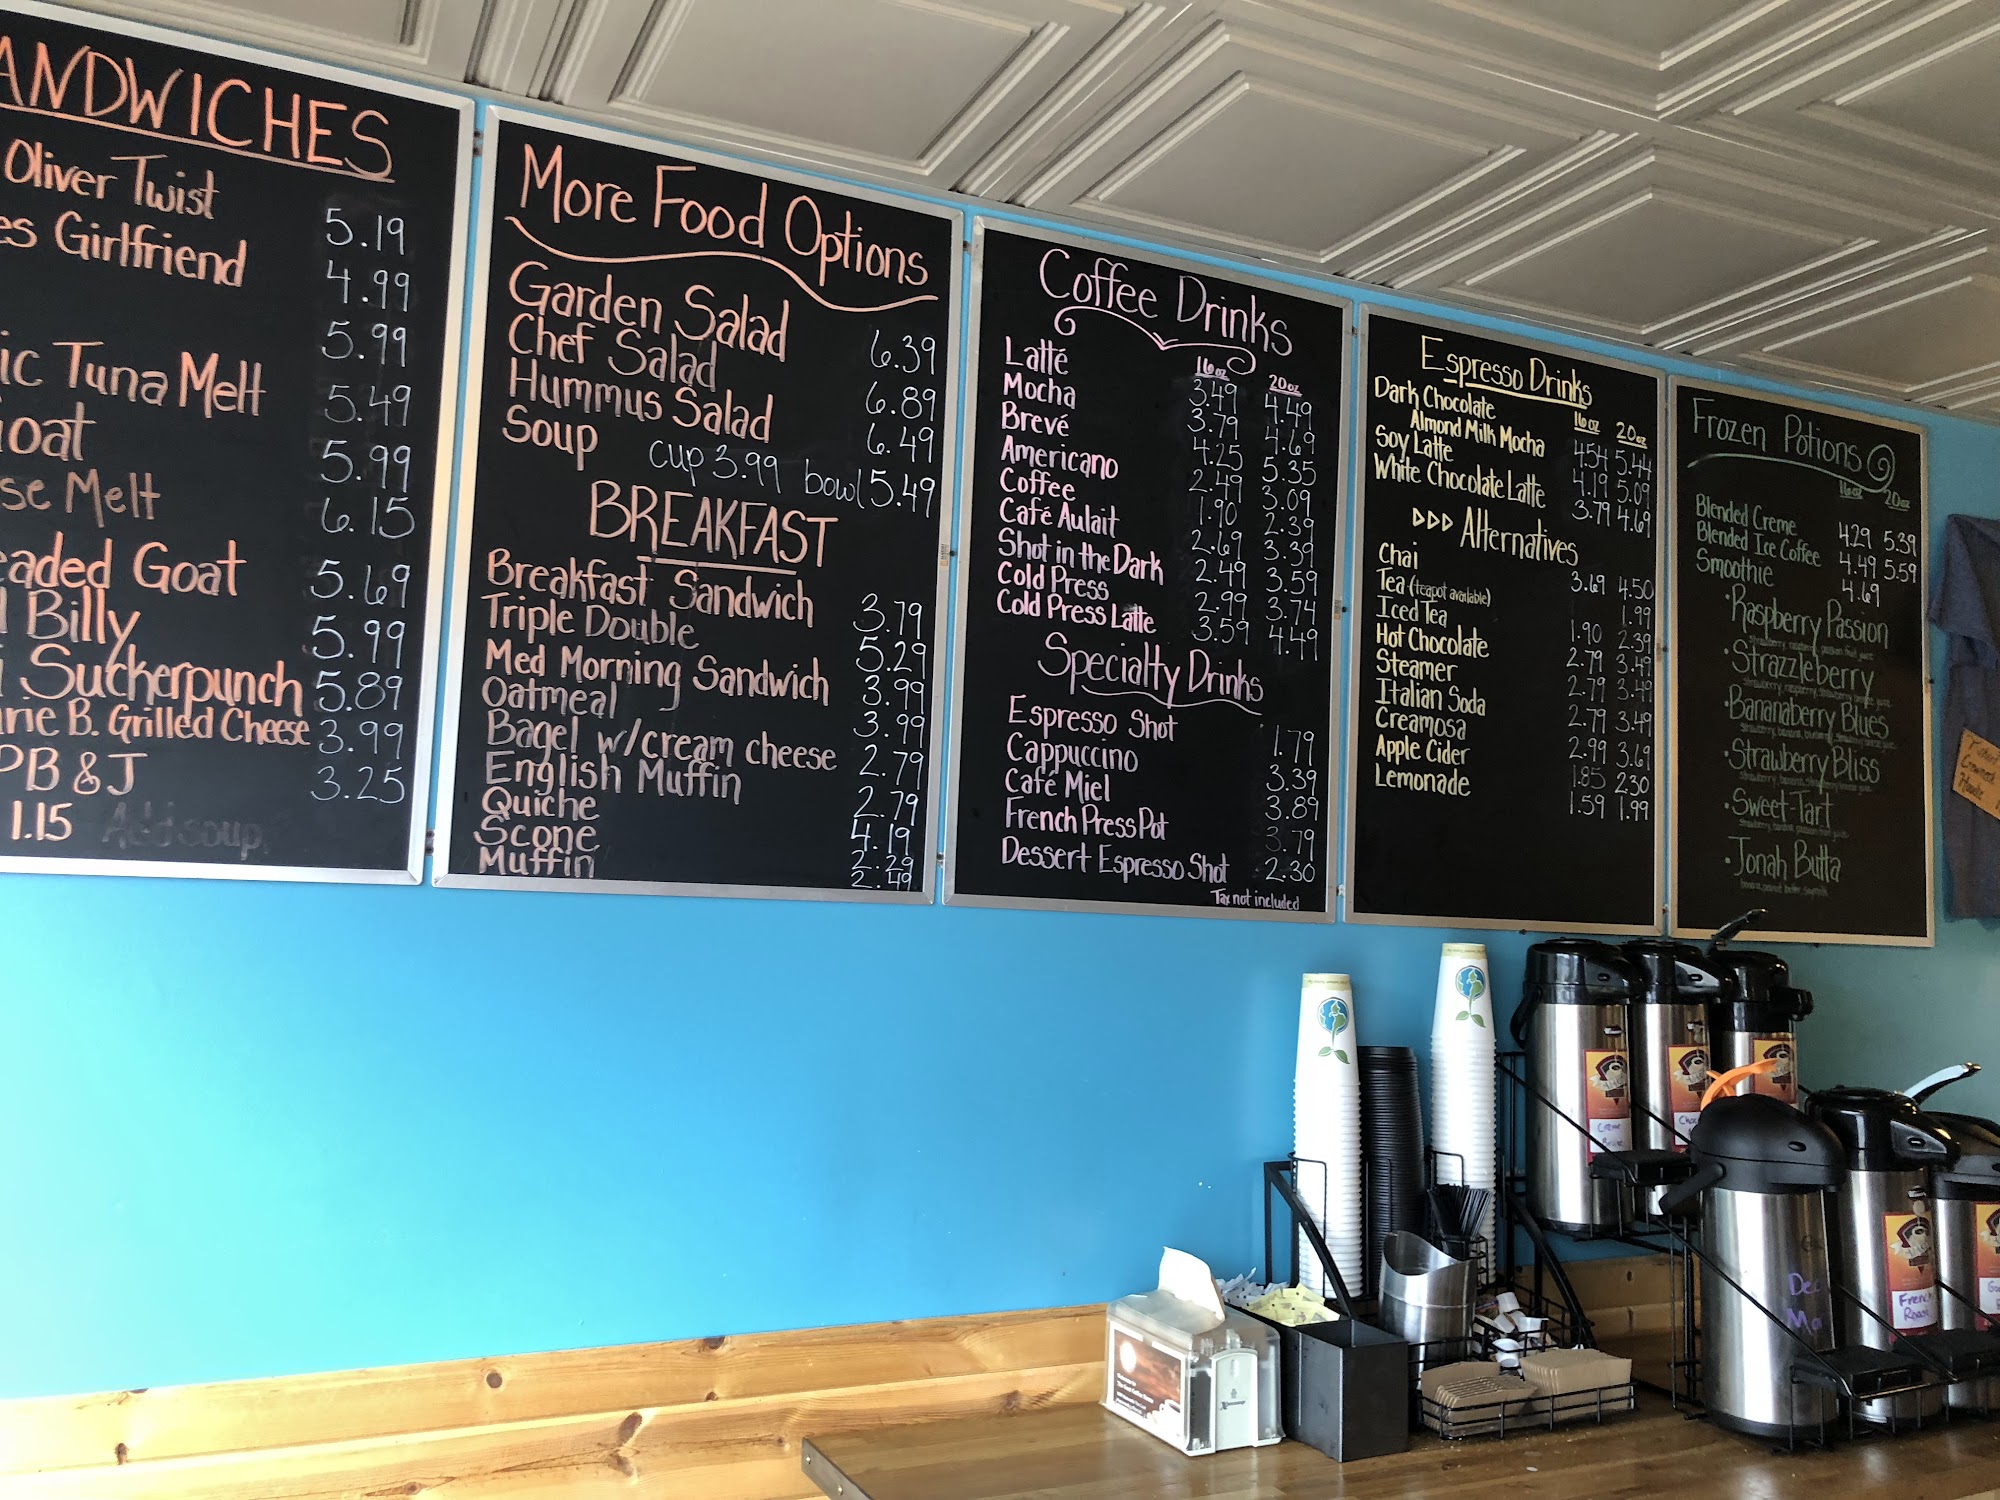 ANDWICHES
Oliver Twist 5.19
es Girlfriend 4.99
5.99
ic Tuna Melt 5.49
oat 5.99
se Melt 6.15
eaded Goat 5.69
l Billy 5.99
i Suckerpunch 5.89
ine B. Grilled Cheese 3.99
PB & J 3.25
1.15 Add soup
More Food Options
Garden Salad 6.39
Chef Salad 6.89
Hummus Salad 6.49
Soup cup 3.99 bowl 5.49
BREAKFAST
Breakfast Sandwich 3.79
Triple Double 5.29
Med Morning Sandwich 3.99
Oatmeal 3.99
Bagel w/cream cheese 2.79
English Muffin 2.79
Quiche 4.19
Scone 2.29
Muffin 2.49
Coffee Drinks
16oz 20oz
Latté 3.49 4.49
Mocha 3.79 4.69
Brevé 4.25 5.35
Americano 2.49 3.09
Coffee 1.90 2.39
Café Aulait 2.69 3.39
Shot in the Dark 2.49 3.59
Cold Press 2.99 3.74
Cold Press Latte 3.59 4.49
Specialty Drinks
Espresso Shot 1.79
Cappuccino 3.39
Café Miel 3.89
French Press Pot 3.79
Dessert Espresso Shot 2.30
Tax not included
Espresso Drinks
16oz 20oz
Dark Chocolate
Almond Milk Mocha 4.54 5.44
Soy Latte 4.19 5.09
White Chocolate Latte 3.79 4.69
Alternatives
Chai 3.69 4.50
Tea (teapot available) 1.99
Iced Tea 1.90 2.39
Hot Chocolate 2.79 3.49
Steamer 2.79 3.49
Italian Soda 2.79 3.49
Creamosa 2.99 3.69
Apple Cider 1.85 2.30
Lemonade 1.59 1.99
Frozen Potions
16oz 20oz
Blended Creme 4.29 5.39
Blended Ice Coffee 4.49 5.59
Smoothie 4.69
·Raspberry Passion
strawberry, raspberry, passion fruit juice
·Strazzleberry
·Bananaberry Blues
·Strawberry Bliss
·Sweet-Tart
·Jonah Butta
French
Roast